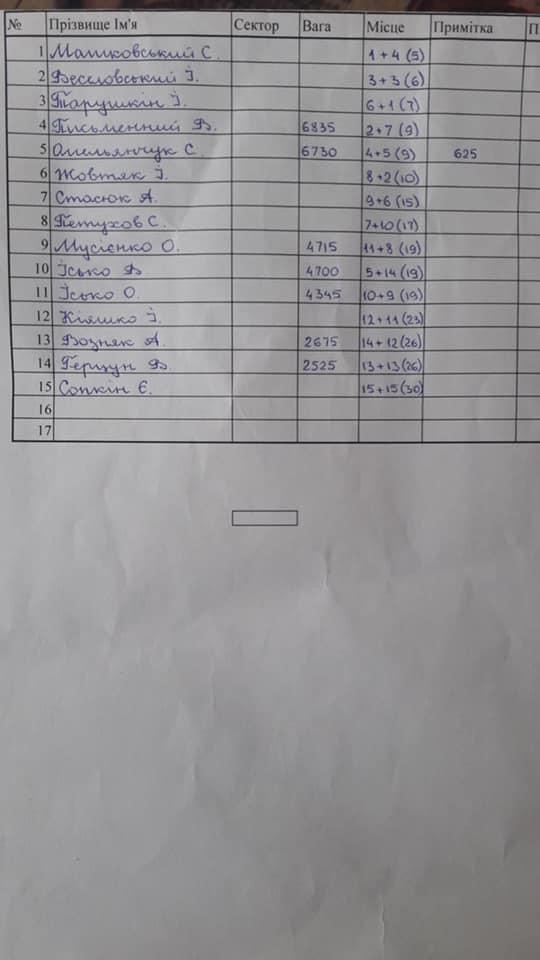 № Прізвище Ім'я Сектор Вага Місце Примітка П
1 Машковський С. 1+4 (5)
2 Веселовський І. 3+3 (6)
3 Тарушкін І. 6+1 (7)
4 Письменний В. 6835 2+7 (9)
5 Омельянчук С. 6730 4+5 (9) 625
6 Жовтяк І. 8+2 (10)
7 Стасюк А. 9+6 (15)
8 Петухов С. 7+10 (17)
9 Мусієнко О. 4715 11+8 (19)
10 Ісько В 4700 5+14 (19)
11 Ісько О. 4345 10+9 (19)
12 Кіяшко І. 12+11 (23)
13 Возняк А. 2675 14+12 (26)
14 Герцун В. 2525 13+13 (26)
15 Сопкін Є. 15+15 (30)
16
17